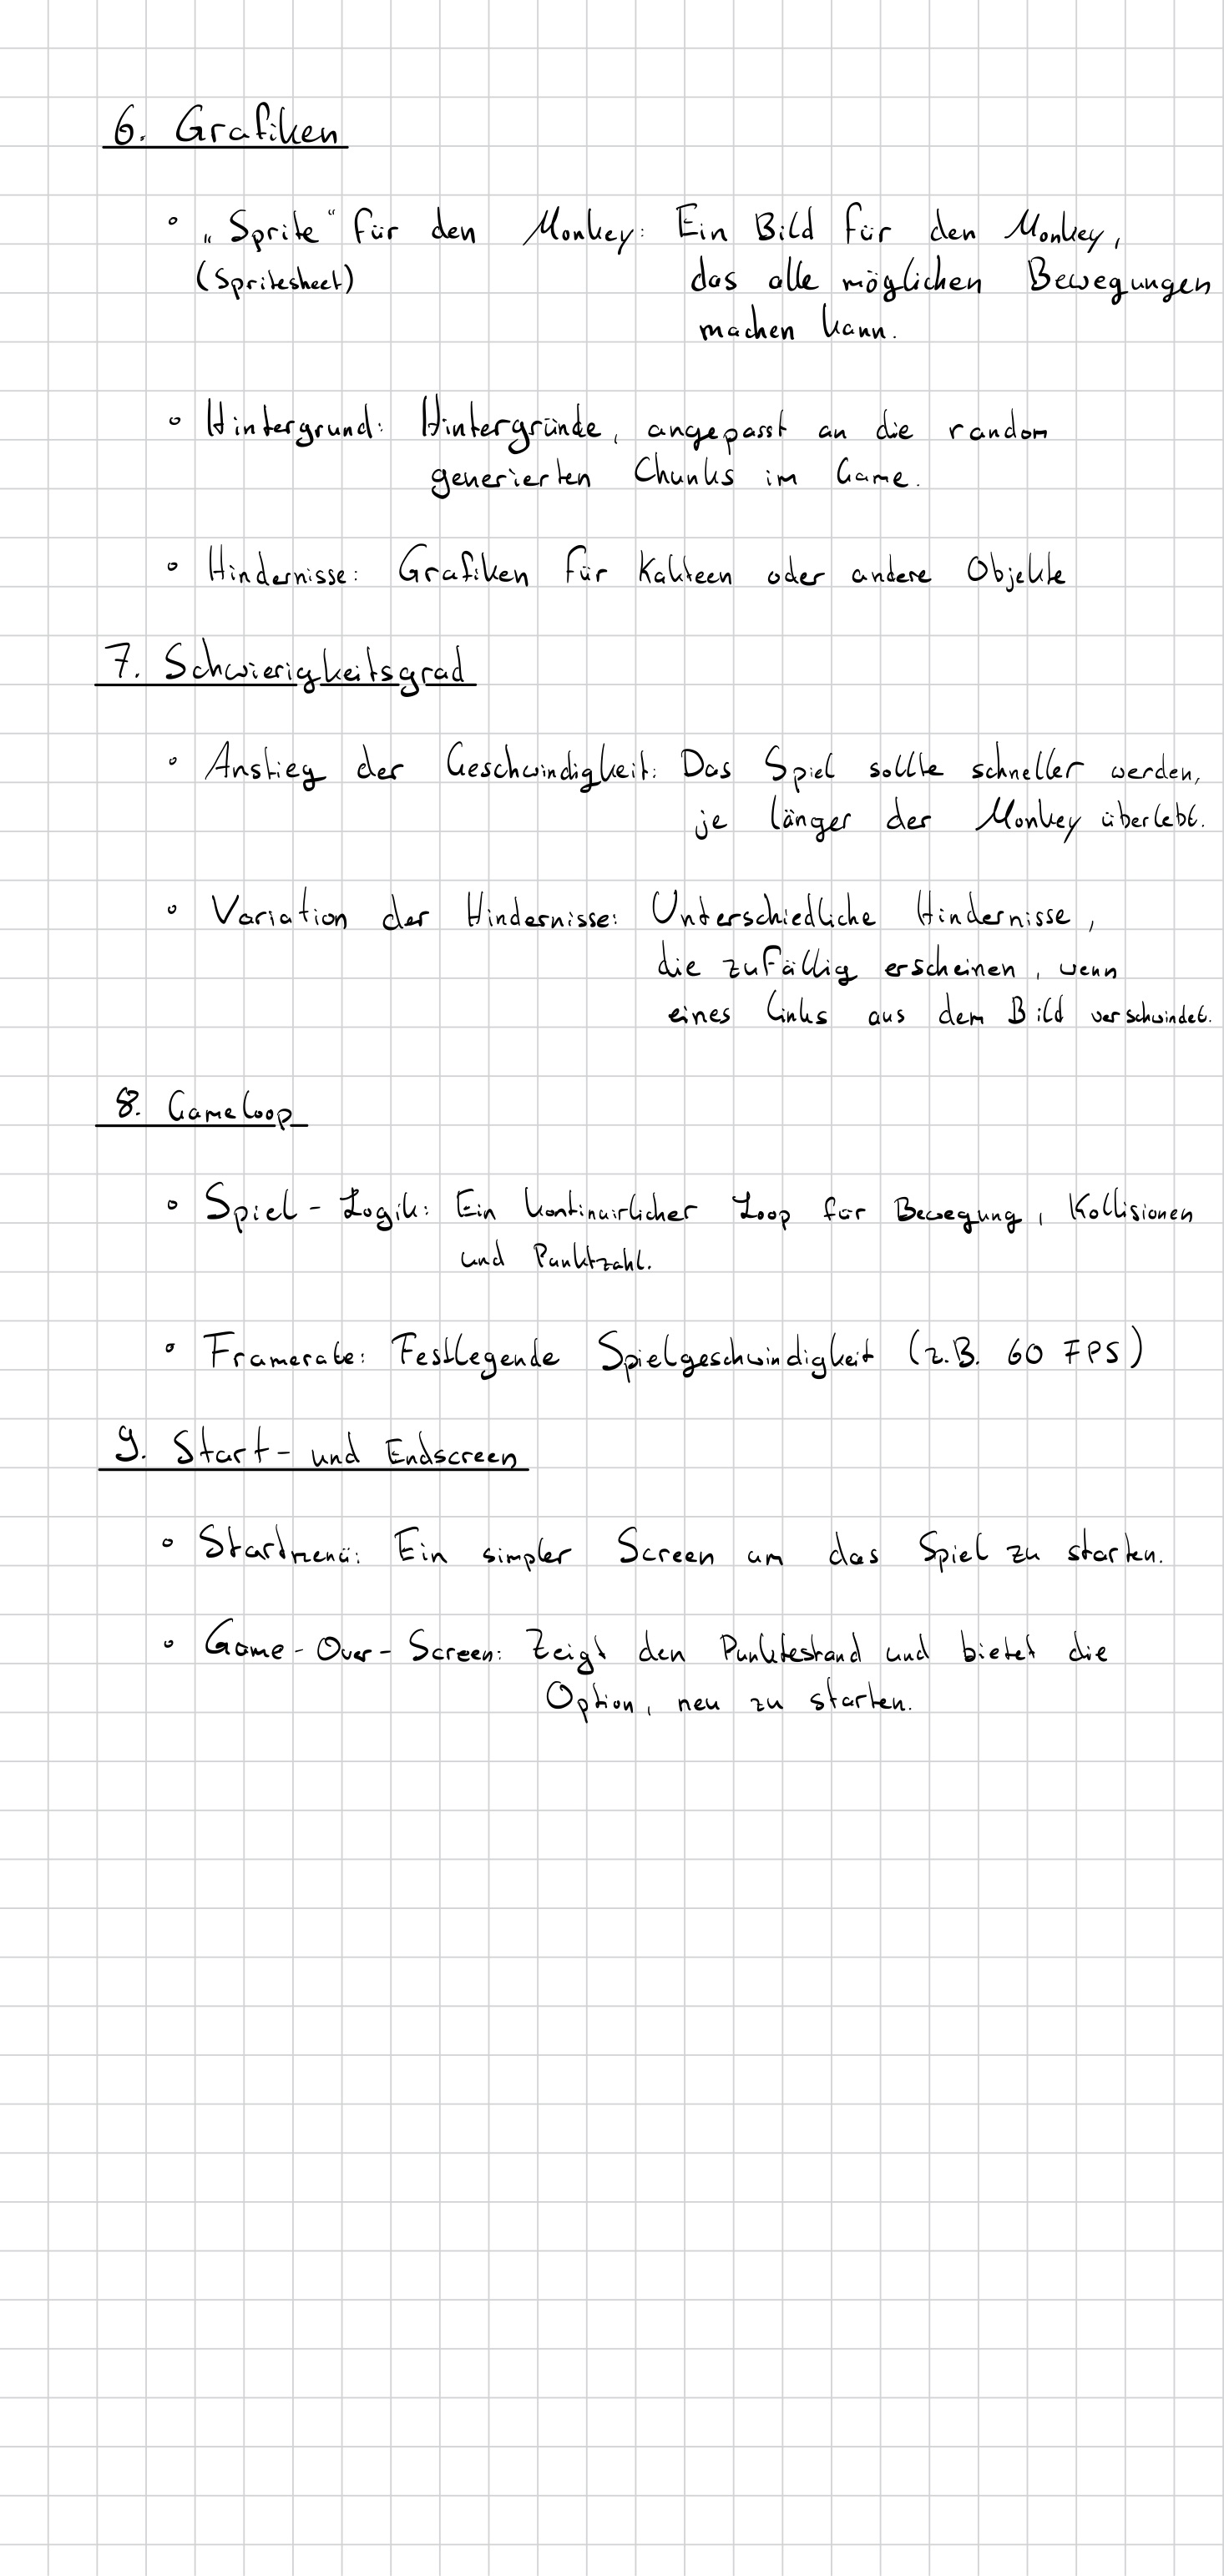 6. Grafiken
° „Sprite“ für den Monkey: Ein Bild für den Monkey,
(Spritesheet) das alle möglichen Bewegungen
machen kann.
° Hintergrund: Hintergründe, angepasst an die random
generierten Chunks im Game.
° Hindernisse: Grafiken für Kakteen oder andere Objekte
7. Schwierigkeitsgrad
° Anstieg der Geschwindigkeit: Das Spiel sollte schneller werden,
je länger der Monkey überlebt.
° Variation der Hindernisse: Unterschiedliche Hindernisse,
die zufällig erscheinen, wenn
eines links aus dem Bild verschwindet.
8. Gameloop
° Spiel-Logik: Ein kontinuirlicher Loop für Bewegung, Kollisionen
und Punktzahl.
° Framerate: Festlegende Spielgeschwindigkeit (z.B. 60 FPS)
9. Start- und Endscreen
° Startmenü: Ein simpler Screen um das Spiel zu starten.
° Game-Over-Screen: Zeigt den Punktestand und bietet die
Option, neu zu starten.